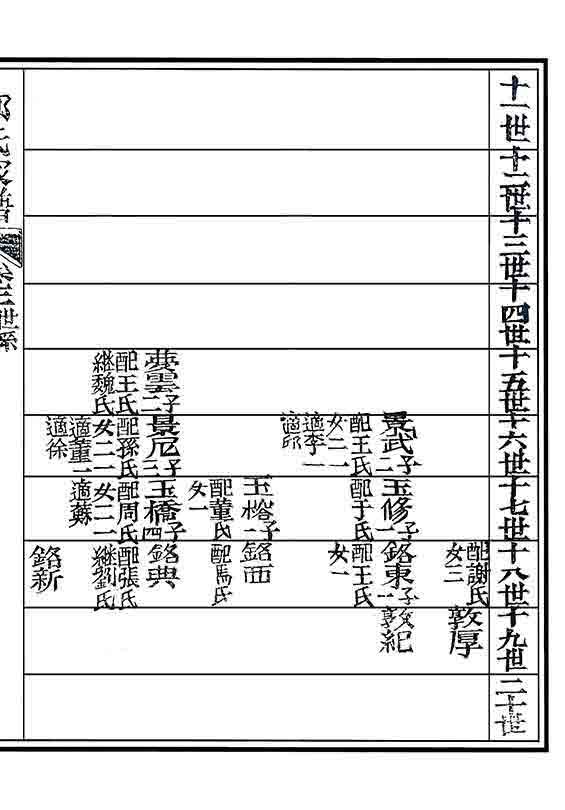 十一世
十二世
十三世
十四世
十五世
十六世
十七世
十八世
十九世
二十世
配謝氏
女三
敦厚
景武子二
配王氏
女二一
適李一
適邱
玉修子一
配于氏
銘東子一
配王氏
女一
敦紀
玉榕子一
配董氏
女一
銘西
配馬氏
雲子二
配王氏
継魏氏
景尼子三
配孫氏
女二一
適董一
適徐
玉橋子四
配周氏
女二一
適蘇
銘典
配張氏
継劉氏
銘新
氏家譜
卷三世系